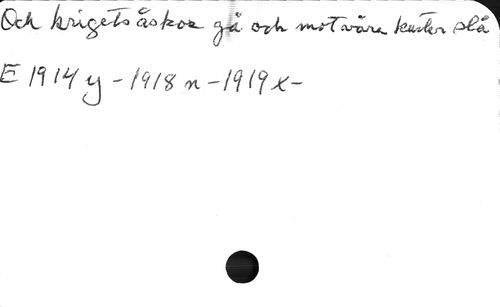 Och krigets åskor gå och mot våra kuster slå
E 1914 y - 1918 n - 1919 x -